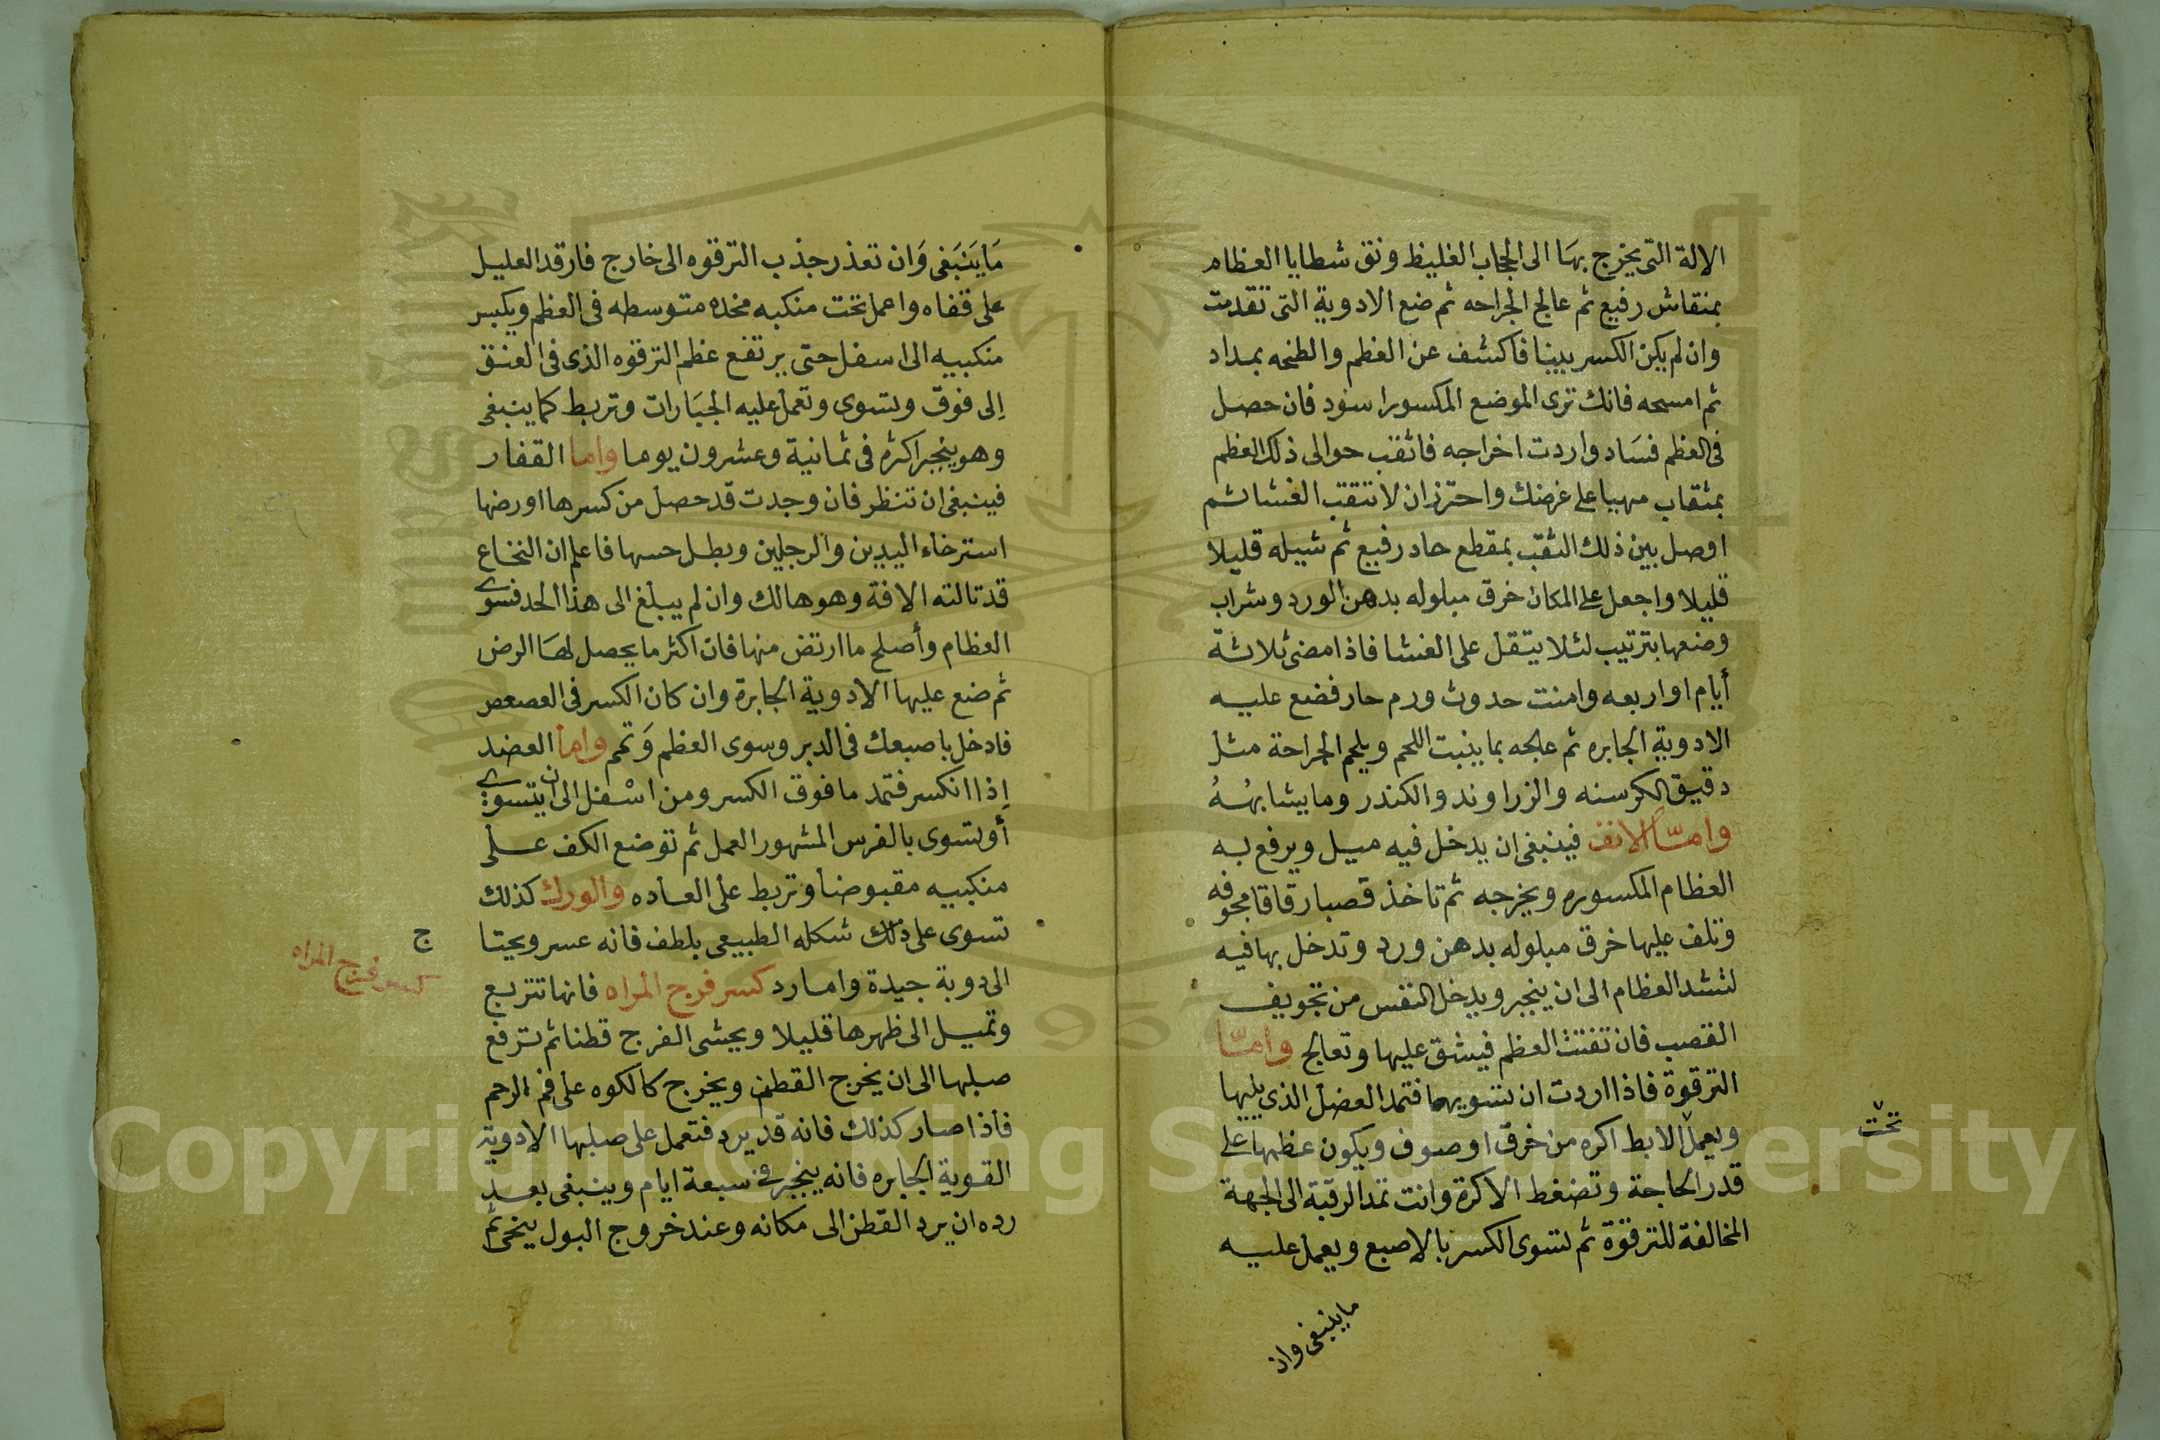 الالة التى يخرج بهَا الى الحجاب الغليظ ونق شظايا العظام
بمنقاش رفيع ثم عالج الجراحه ثم ضع الادوية التى تقدمت
وان لم يكن الكسر بينا فاكشف عن العظم والطخه بمداد
ثم امسحه فانك ترى الموضع المكسور اسود فان حصل
فى العظم فسَاد واردت اخراجه فاثقب حوالى ذلك العظم
بمثقاب مهيا على غرضك واحترز ان لا تثقب الغشا ثم
اوصل بين ذلك الثقب بمقطع حاد رفيع ثم شيله قليلا
قليلا واجعل على المكان خرق مبلوله بدهن الورد وشراب
وضعها بترتيب لئلا يتقل على الغشا فاذا مضى ثلاثة
أيام او اربعه وامنت حدوث ورم حار فضع عليه
الادوية الجابره ثم علجه بما ينبت اللحم ويلحم الجراحة مثل
دقيق الكرسنه والزراوند والكندر وما يشابهُهُ
وامّا الانف فينبغى ان يدخل فيه ميل ويرفع به
العظام المكسوره ويخرجه ثم تاخذ قصبا رقاقا مجوفه
وتلف عليها خرق مبلوله بدهن ورد وتدخل بها فيه
لتشد العظام الى ان ينجبر ويدخل النفس من تجويف
القصب فان تفتت العظم فيشق عليها وتعالج وامّا
الترقوة فاذا اردت ان تسويهما فتمد العضل الذى يليها
ويعمل الابط اكره من خرق او صوف ويكون عظمها على
تحت
قدر الحاجة وتضغط الاكرة وانت تمد الرقبة الى الجهة
المخالفة للترقوة ثم تسوى الكسر بالاصبع ويعمل عليه
ما ينبغى وان
مَا يَنبَغى وَان تعذر جذب الترقوه الى خارج فارقد العليل
على قفاه واعمل تحت منكبه مخده متوسطه فى العظم ويكبس
منكبيه الى اسفل حتى يرتفع عظم الترقوه الذى فى العنق
إلى فوق ويسوى وتعمل عليه الجبَارات وتربط كما ينبغى
وهو ينجبر اكثره فى ثمانية وعشرون يوما واما القفار
فينبغى ان تنظر فان وجدت قد حصل من كسرها اورضها
استرخاء اليدين والرجلين وبطل حسها فاعلم ان النخاع
قد نالته الافة وهو هالك وان لم يبلغ الى هذا الحد فسوى
العظام وأصلح ما ارتض منها فان اكثر ما يحصل لهَا الرض
ثم ضع عليها الادوية الجابرة وان كان الكسر فى العصعص
فادخل باصبعك فى الدبر وسوى العظم وَتمم واما العضد
إذا انكسر فتمد ما فوق الكسر ومن اسْفل الى ان يتسوى
أو يتسوى بالفرس المشهور العمل ثم توضع الكف على
منكبيه مقبوضا وتربط على العاده والورك كذلك
تسوى على ذلك شكله الطبيعى بلطف فانه عسر ويحتا
ج
الى دوبة جيدة واما رد كسر فرج المراه فانها تتربع
كسر فرج المراه
وتميل الى ظهرها قليلا ويحشى الفرج قطنا ثم ترفع
صلبها الى ان يخرج القطن ويخرج كالكوه على فم الرحم
فاذا صار كذلك فانه قد يرد فتعمل على صلبها الادوية
القوية الجابره فانه ينجبر فى سبعة ايام وينبغى بعد
رده ان يرد القطن الى مكانه وعند خروج البول ينحى ثم
Copyright © King Saud University